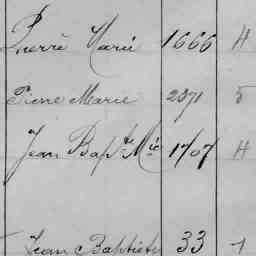 Pierre Marie 1666 H
Pierre Marie 2371 5
Jean Bapte Mie 1707 H
Jean Baptiste 33 1